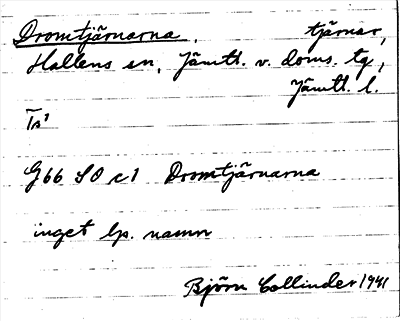 Dromtjärnarna. tjärnar,
Hallens sn, Jämtl. v. doms. tg,
Jämtl. l.
Is¹
G66 SO c1 Dromtjärnarna
inget lp. namn
Björn Collinder 1941